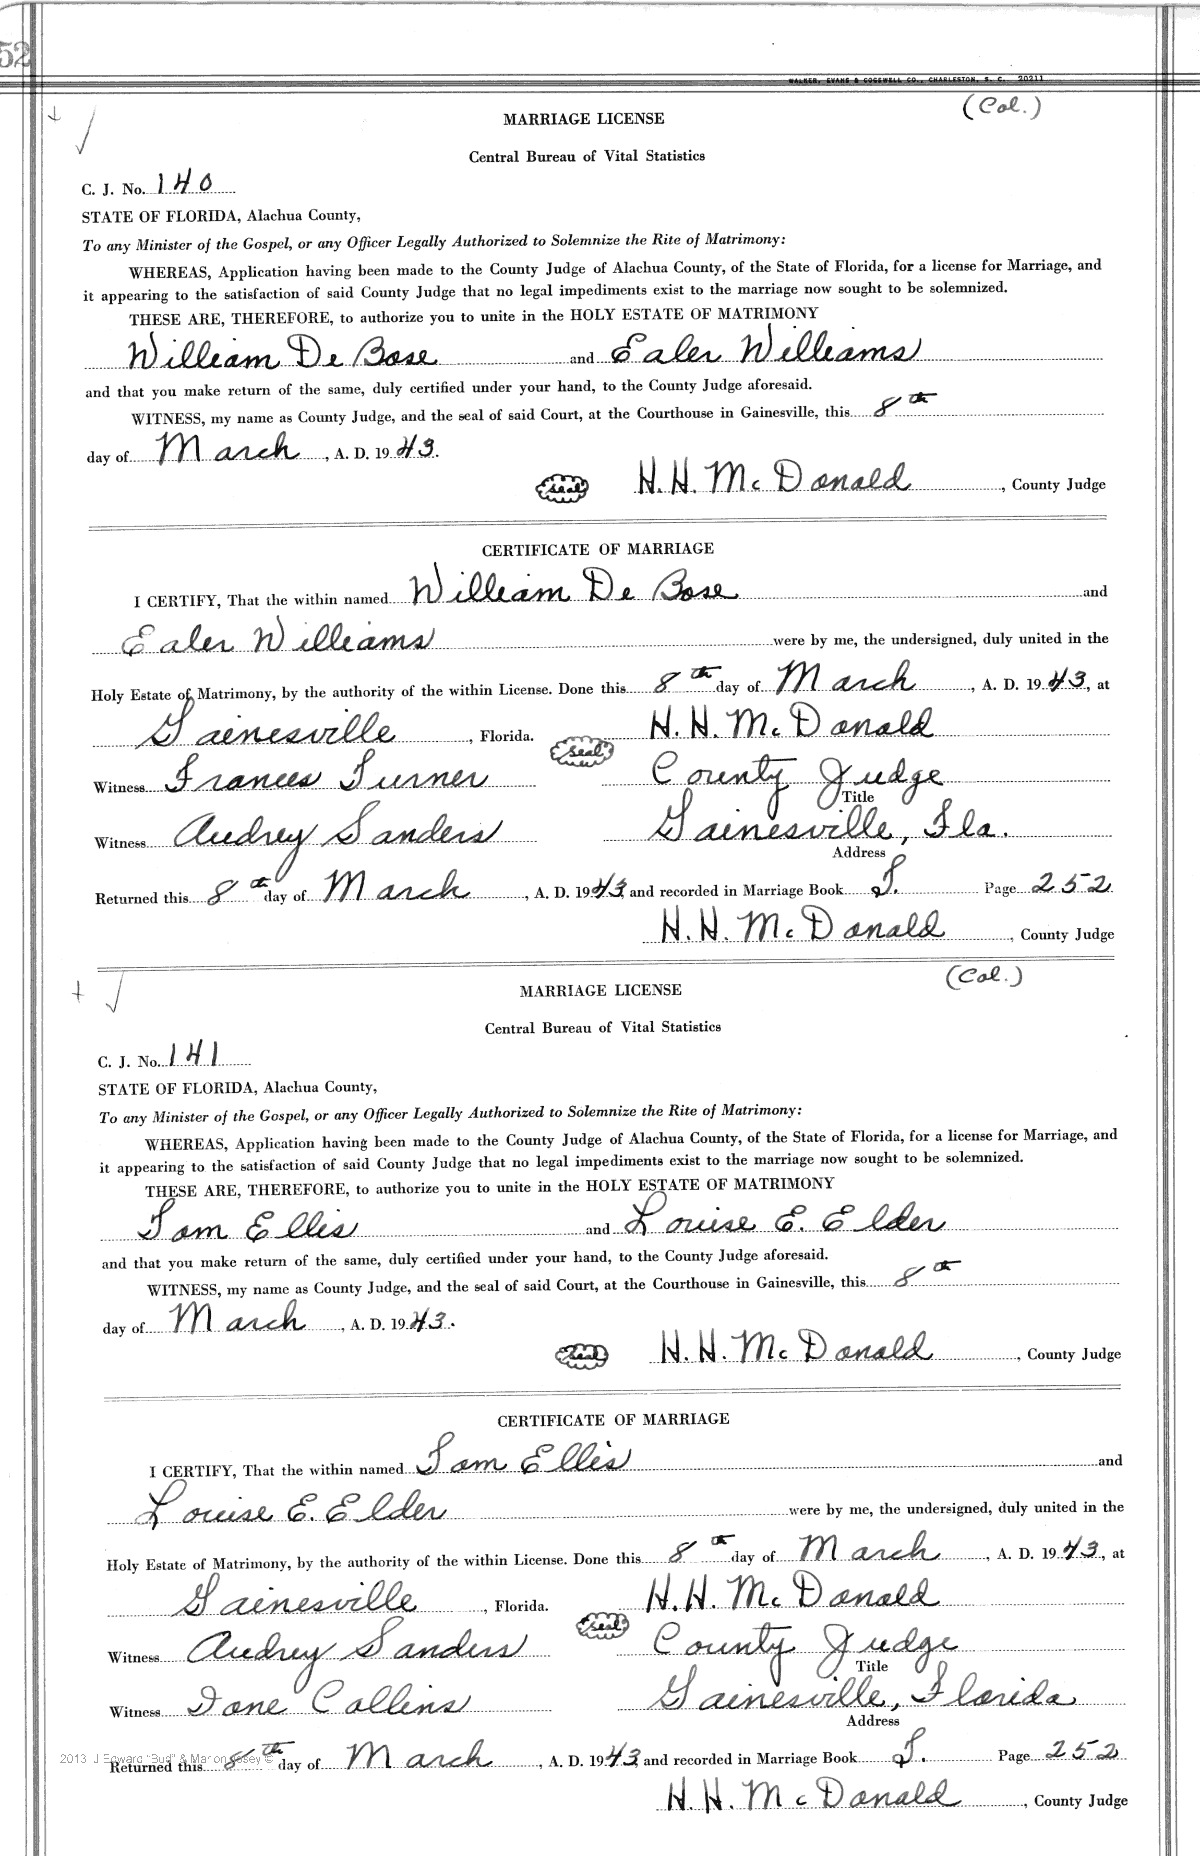 52
WALKER, EVANS & COGSWELL CO., CHARLESTON, S. C. 20211
(Col.)
MARRIAGE LICENSE
Central Bureau of Vital Statistics
C. J. No. 140
STATE OF FLORIDA, Alachua County,
To any Minister of the Gospel, or any Officer Legally Authorized to Solemnize the Rite of Matrimony:
WHEREAS, Application having been made to the County Judge of Alachua County, of the State of Florida, for a license for Marriage, and
it appearing to the satisfaction of said County Judge that no legal impediments exist to the marriage now sought to be solemnized.
THESE ARE, THEREFORE, to authorize you to unite in the HOLY ESTATE OF MATRIMONY
William De Bose and Ealer Williams
and that you make return of the same, duly certified under your hand, to the County Judge aforesaid.
WITNESS, my name as County Judge, and the seal of said Court, at the Courthouse in Gainesville, this 8th
day of March, A. D. 1943.
seal H. H. McDonald, County Judge
CERTIFICATE OF MARRIAGE
I CERTIFY, That the within named William De Bose and
Ealer Williams were by me, the undersigned, duly united in the
Holy Estate of Matrimony, by the authority of the within License. Done this 8th day of March, A. D. 1943, at
Gainesville, Florida. seal H. H. McDonald
Witness Frances Turner County Judge
Title
Witness Audrey Sanders Gainesville, Fla.
Address
Returned this 8th day of March, A. D. 1943 and recorded in Marriage Book Page 252
H. H. McDonald, County Judge
(Col.)
MARRIAGE LICENSE
Central Bureau of Vital Statistics
C. J. No. 141
STATE OF FLORIDA, Alachua County,
To any Minister of the Gospel, or any Officer Legally Authorized to Solemnize the Rite of Matrimony:
WHEREAS, Application having been made to the County Judge of Alachua County, of the State of Florida, for a license for Marriage, and
it appearing to the satisfaction of said County Judge that no legal impediments exist to the marriage now sought to be solemnized.
THESE ARE, THEREFORE, to authorize you to unite in the HOLY ESTATE OF MATRIMONY
Tom Ellis and Louise E. Elder
and that you make return of the same, duly certified under your hand, to the County Judge aforesaid.
WITNESS, my name as County Judge, and the seal of said Court, at the Courthouse in Gainesville, this 8th
day of March, A. D. 1943.
seal H. H. McDonald, County Judge
CERTIFICATE OF MARRIAGE
I CERTIFY, That the within named Tom Ellis and
Louise E. Elder were by me, the undersigned, duly united in the
Holy Estate of Matrimony, by the authority of the within License. Done this 8th day of March, A. D. 1943, at
Gainesville, Florida. seal H. H. McDonald
Witness Audrey Sanders County Judge
Title
Witness Ione Collins Gainesville, Florida
Address
2013 J Edward "Bud" & Marion
Returned this 8th day of March, A. D. 1943 and recorded in Marriage Book Page 252
H. H. McDonald, County Judge